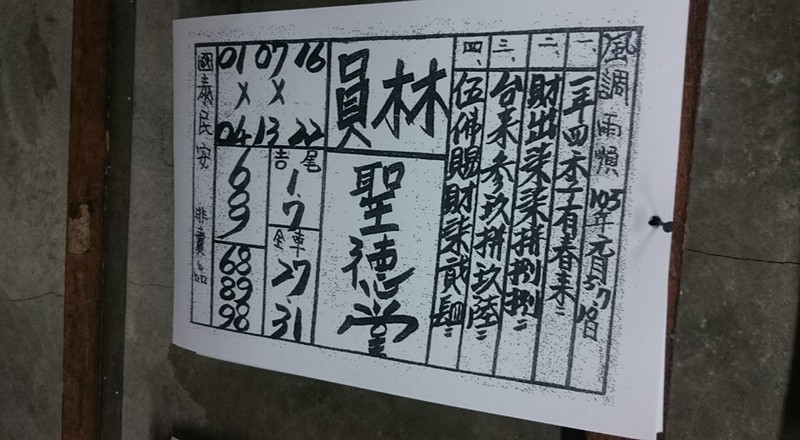 風調雨順 105年元月5.7.19日
一、一年四季有春來=
二、財出柒柒拼捌捌=
三、台来參玖拼玖陸=
四、伍佛賜財柒貮肆=
員林
聖德堂
01 07 16
X X
04 13 22
吉尾
1.7
金車
27
31
6
8
9
68
89
98
國泰民安 非賣品